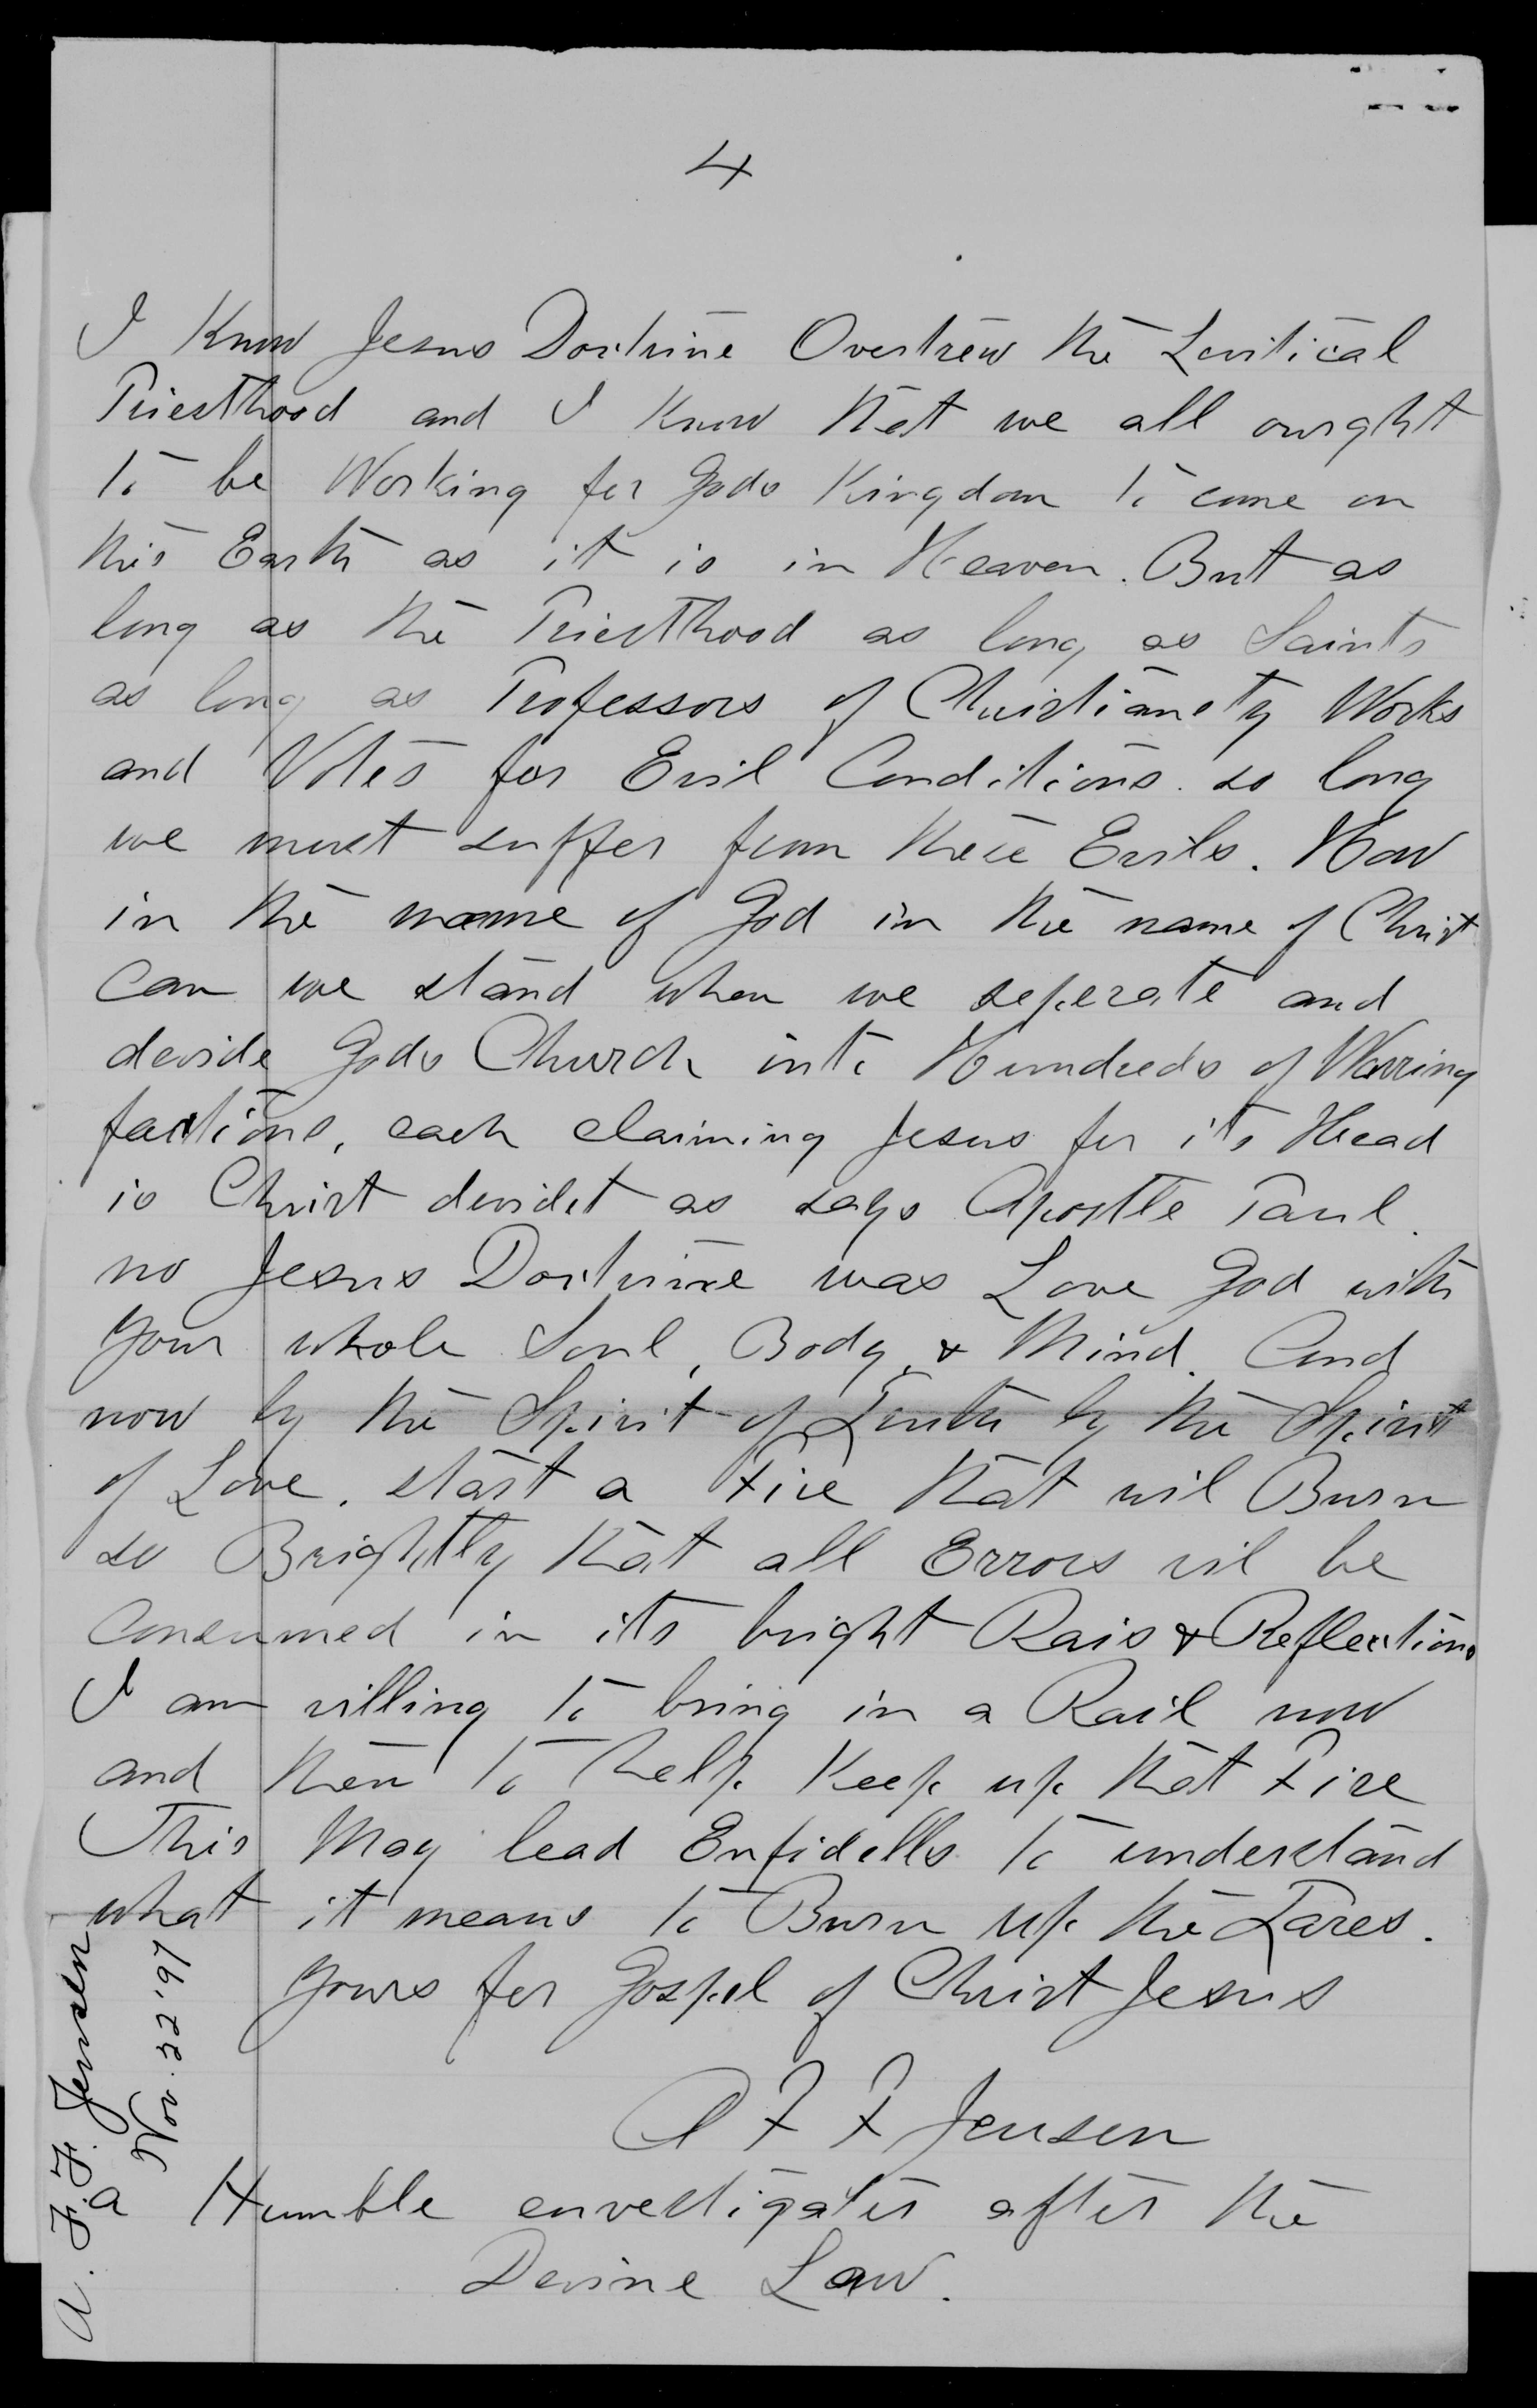 4
I Know Jesus Doctrine Overtrew the Levitical
Priesthood and I Know that we all ourght
to be Working for Gods Kingdom to come on
this Earth as it is in Heaven. But as
long as the Priesthood as long as Saints
as long as Professors of Christianety Works
and Votes for Evil Conditions. so long
we must suffer from these Evils. How
in the name of God in the name of Christ
Can we stand when we seperate and
devide Gods Church into Hundreds of Warring
factions, each claiming Jesus for its Head
is Christ devidet as says Apostle Paul.
no Jesus Doctrine was Love God with
Your whole Soul, Body, & Mind. And
now by the Spirit of Truth by the Spirit
of Love. start a Fire that wil Burn
so Brightly that all Errors vil be
Consumed in its bright Rais & Reflections
I am villing to bring in a Rail now
and then to help Keep up that Fire
This May lead Enfidells to understand
what it means to Burn up the Tares.
Yours for Gospel of Christ Jesus
A F F Jensen
a Humble envestigater after the
Devine Law.
A. F. F. Jensen
Nov. 22 '97